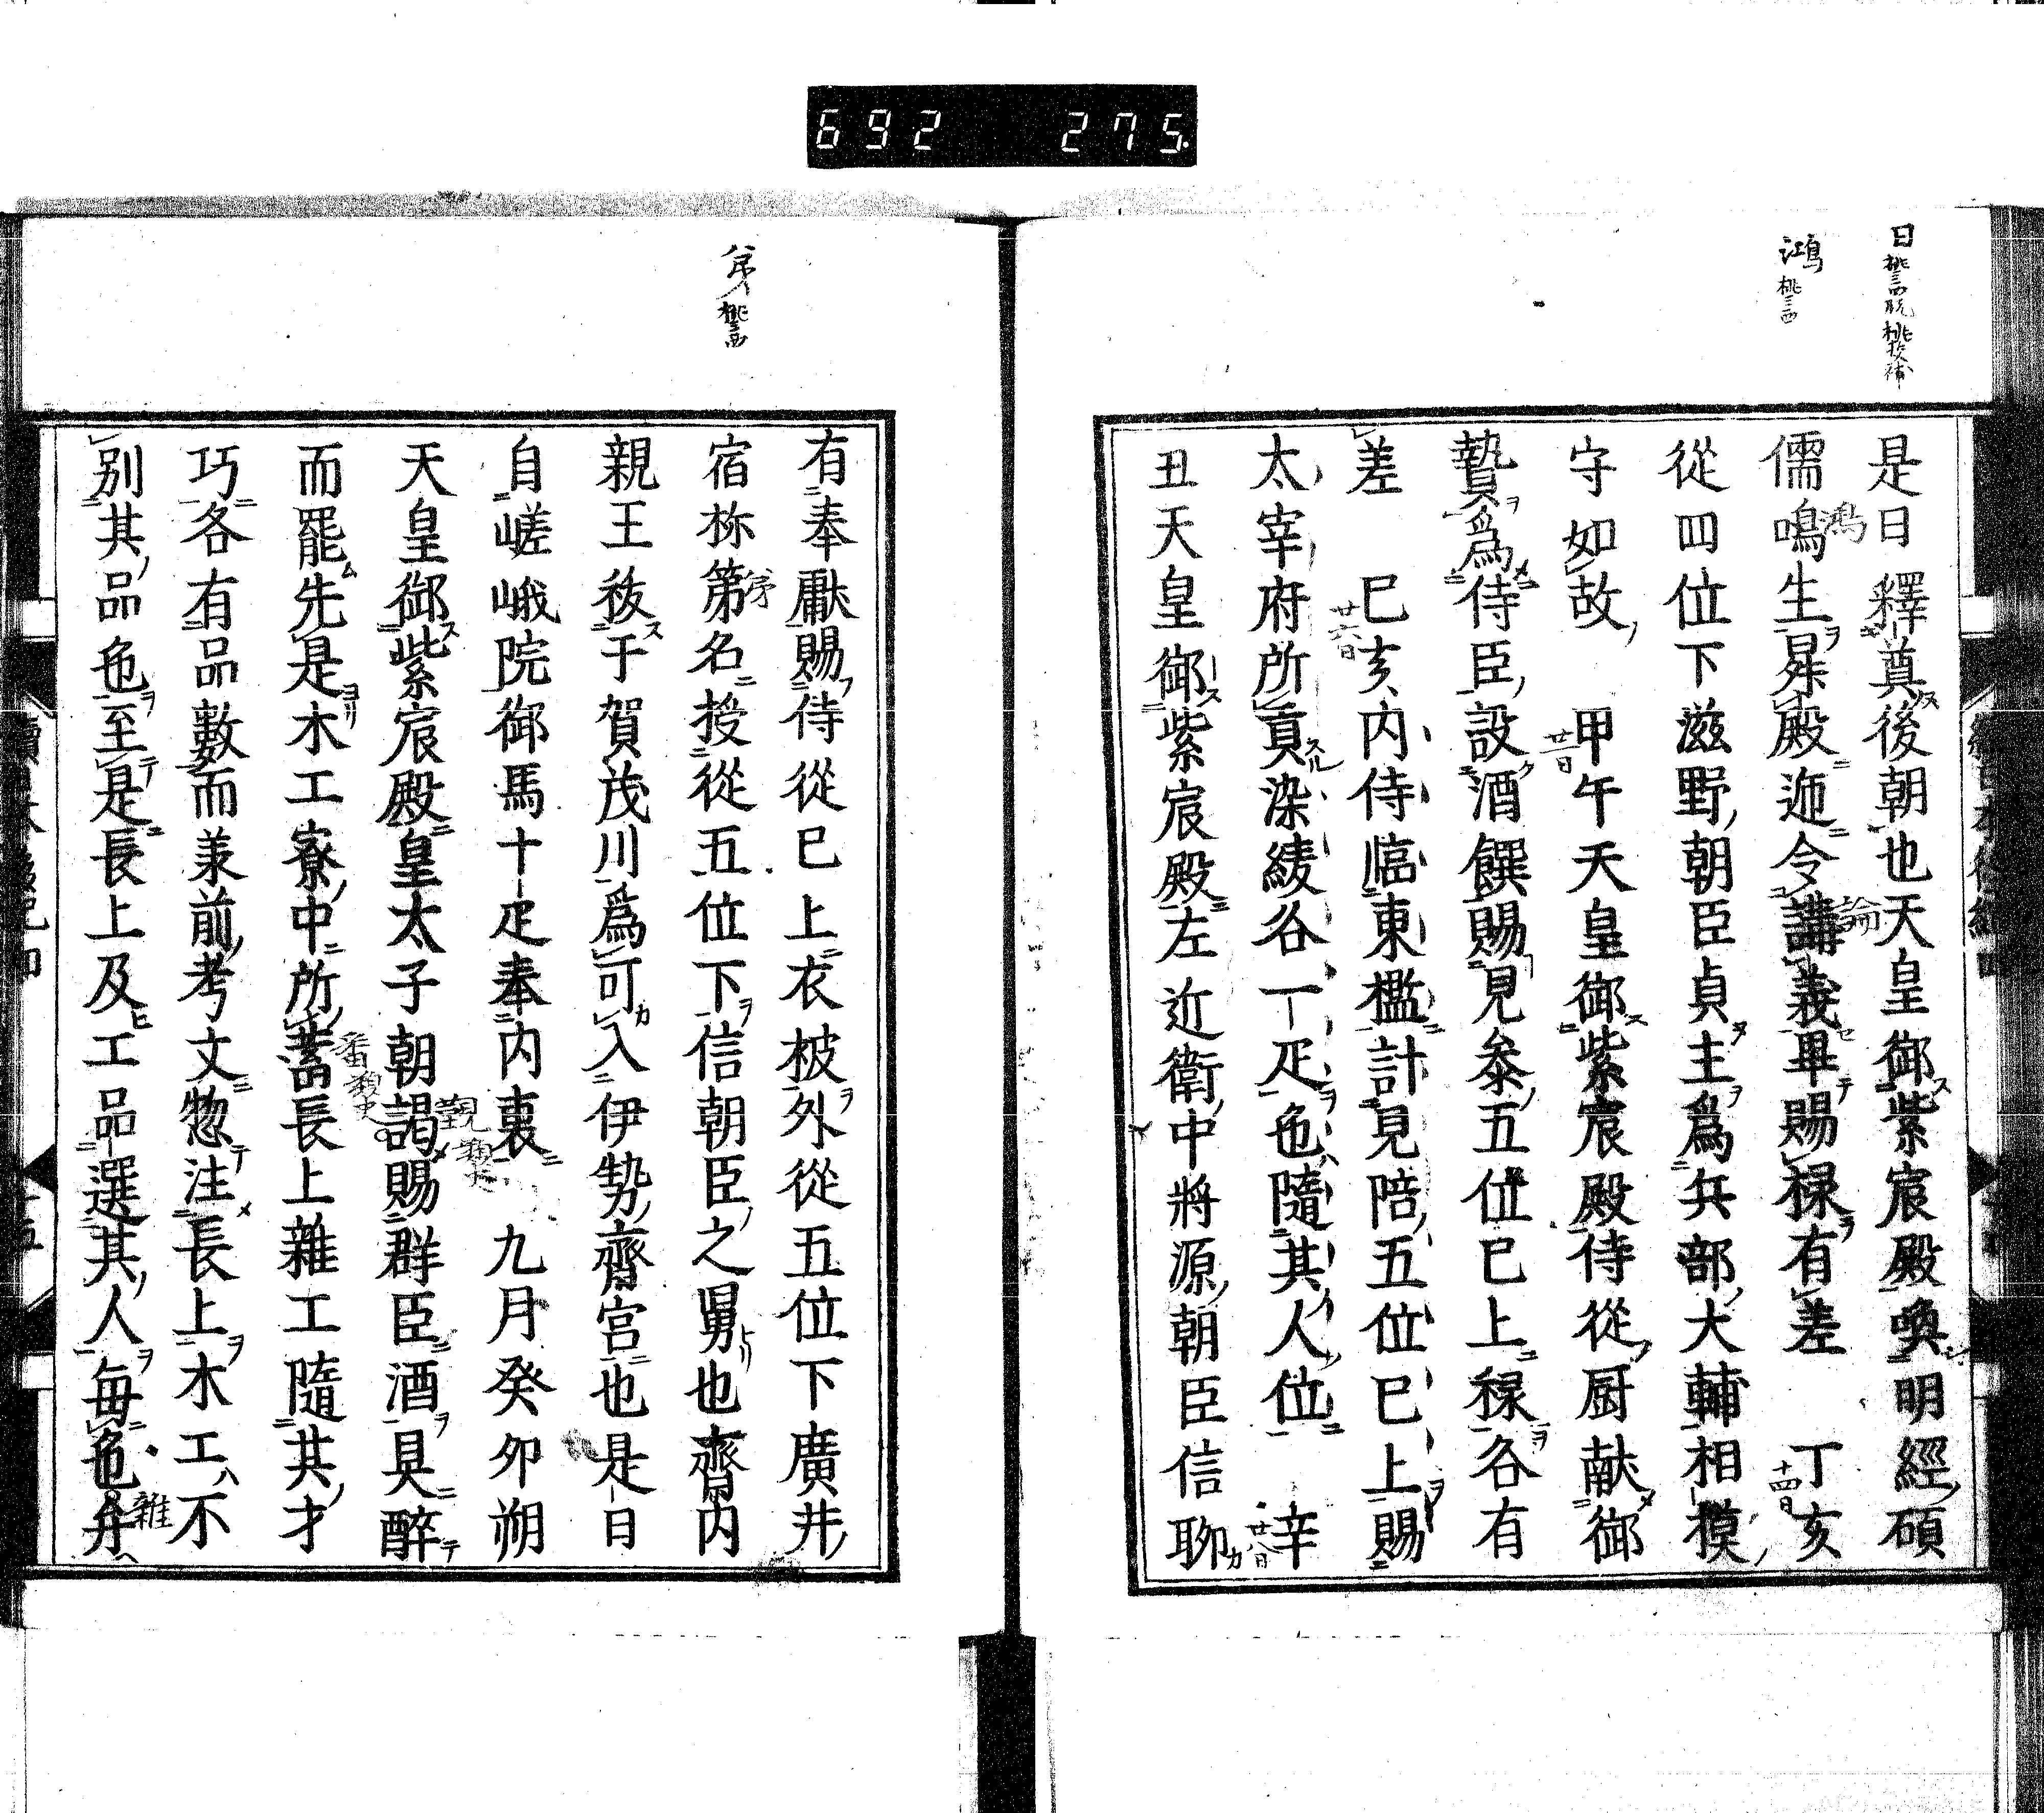 692 275
日 挑壹西脱挑契補
鴻 挑三西
是日釋奠後朝也天皇御紫宸殿喚明經碩
儒鳴生昇殿迊令講義畢賜祿有差 丁亥
從四位下滋野朝臣貞主爲兵部大輔相摸
守如故 甲午天皇御紫宸殿侍從厨献御
贄爲侍臣設酒饌賜見叅五位已上祿各有
差 巳亥内侍臨東檻計見陪五位已上賜
太宰府所貢染綾各一疋色隨其人位 辛
丑天皇御紫宸殿左近衛中將源朝臣信聊
有奉獻賜侍從已上衣被外從五位下廣井
宿祢第名授從五位下信朝臣之舅也齋内
親王秡于賀茂川爲可入伊勢齋宮也是日
自嵯峨院御馬十疋奉内裏 九月癸卯朔
天皇御紫宸殿皇太子朝謁賜群臣酒具醉
而罷先是木工寮中所蓄長上雜工隨其才
巧各有品數而兼前考文惣注長上木工不
別其品色至是長上及工品選其人每色弁
鴻
論
十四日
廿一日
廿六日
廿八日
觀類史
番類史
雜